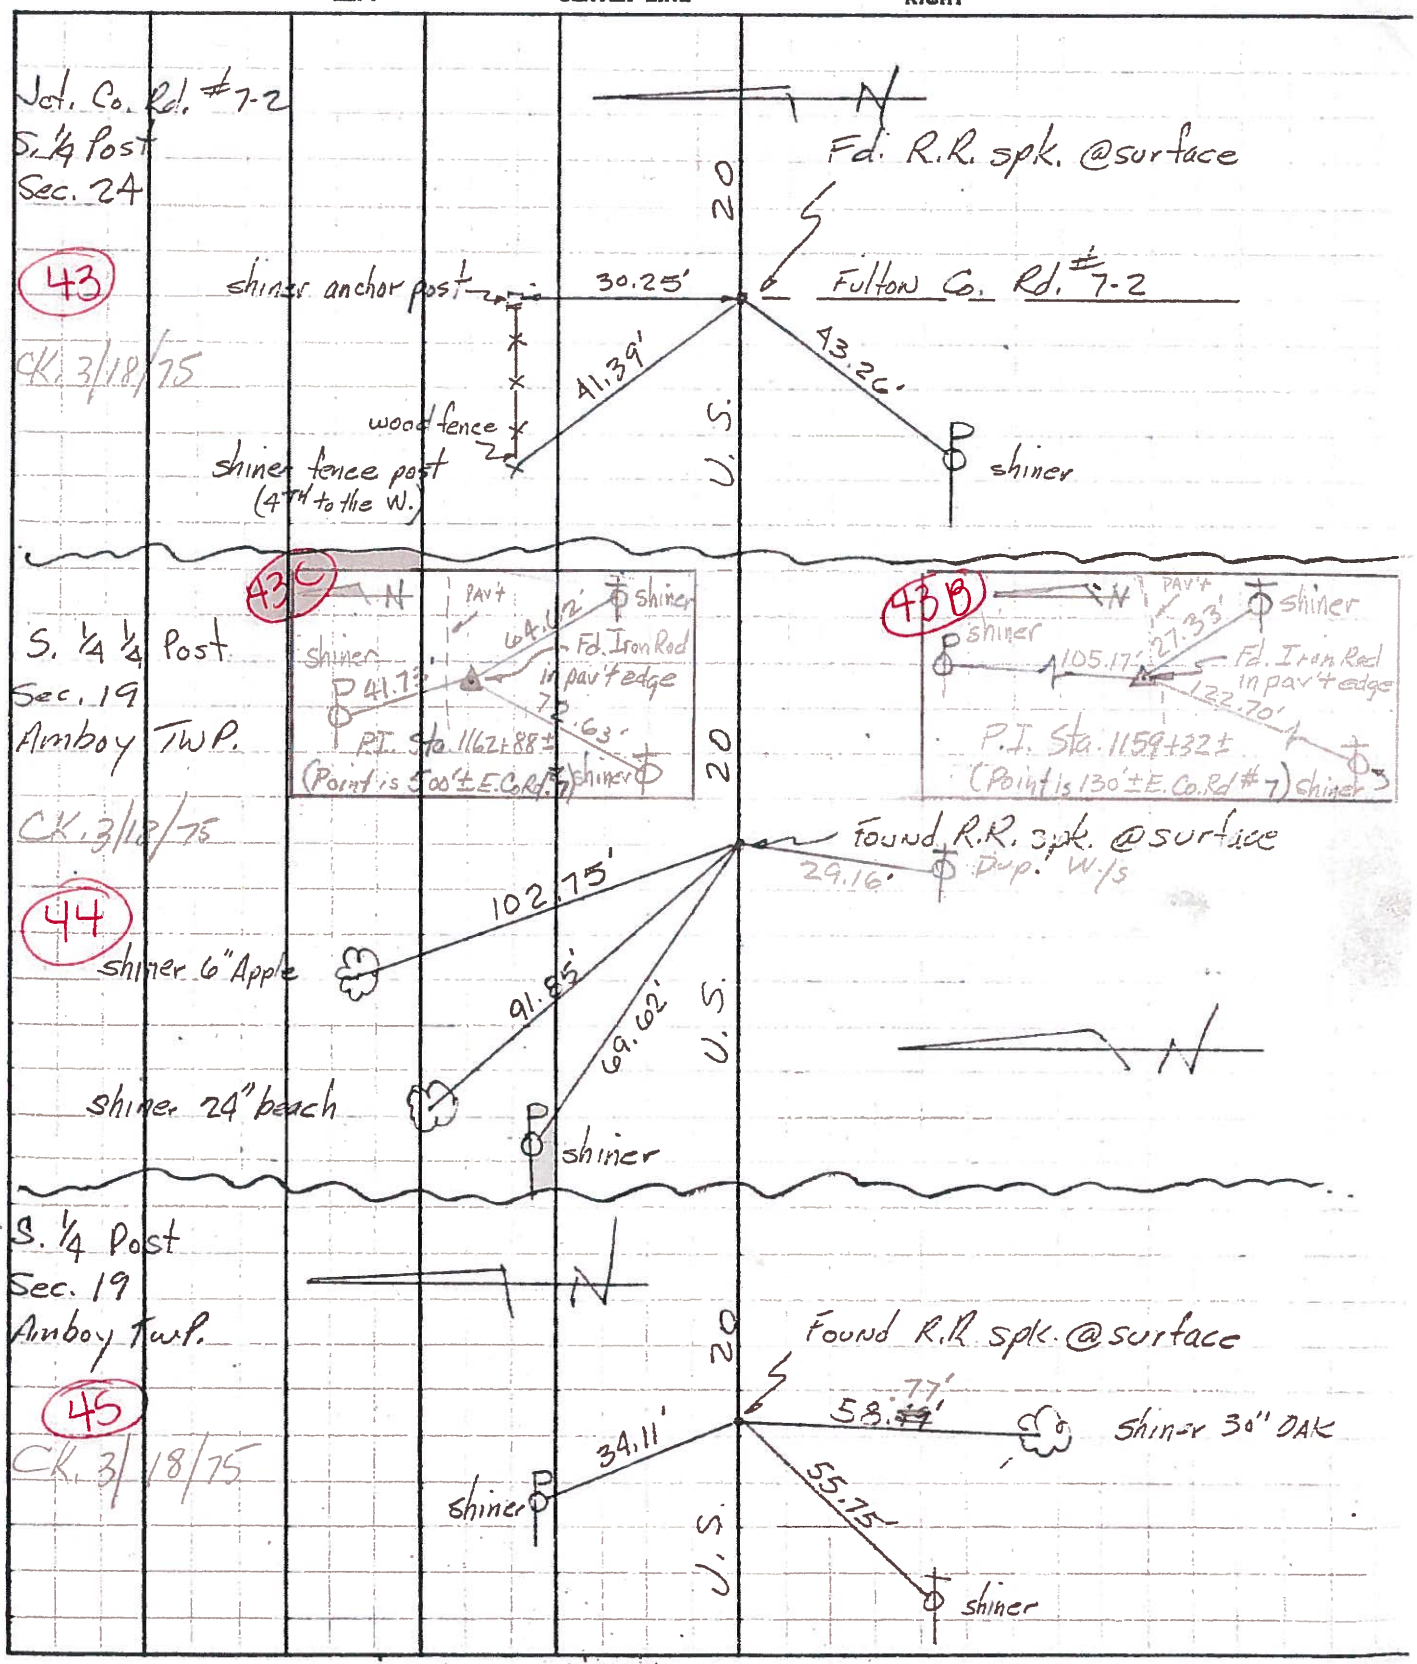 CENTER LINE
RIGHT
Jct. Co. Rd. #7-2
S. 1/4 Post
Sec. 24
43
CK. 3/18/75
N
Fd. R.R. spk. @surface
U.S. 20
shiner anchor post
30.25'
Fulton Co. Rd. #7-2
41.39'
43.26'
wood fence
shiner fence post
(4TH to the W.)
P
shiner
43C
N
PAV't
64.62'
shiner
shiner
P
41.73'
Fd. Iron Rod
in pav't edge
72.63'
P.I. Sta. 1162+88±
(Point is 500'± E. Co. Rd. #7)
shiner
43B
N
PAV't
shiner
27.33'
shiner
P
105.17'
Fd. Iron Rod
in pav't edge
122.70'
P.I. Sta. 1159+32±
(Point is 130'± E. Co. Rd #7)
shiner
S. 1/4 1/4 Post
Sec. 19
Amboy TWP.
CK. 3/18/75
44
U.S. 20
Found R.R. spk. @surface
29.16'
Dup. W/s
102.75'
shiner 6" Apple
91.85'
69.62'
shiner 24" beach
P
shiner
N
S. 1/4 Post
Sec. 19
Amboy TwP.
45
CK. 3/18/75
N
U.S. 20
Found R.R. spk. @surface
.77'
58.
shiner 30" OAK
34.11'
P
shiner
55.75'
shiner